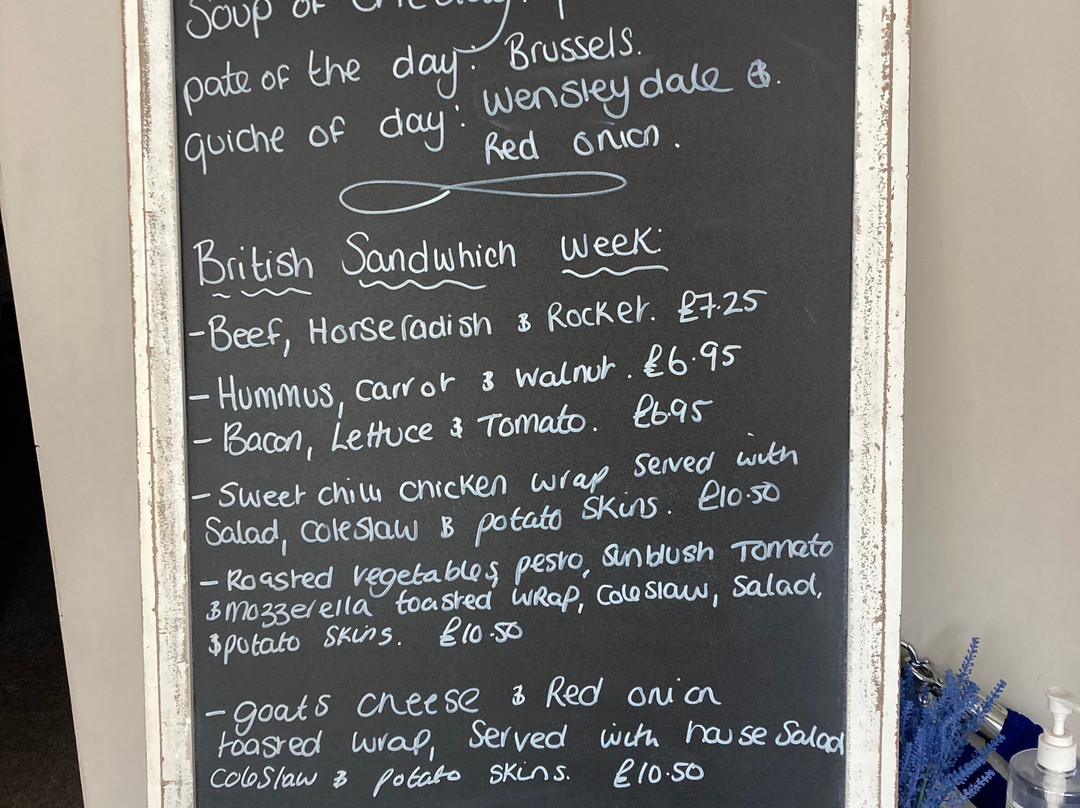 Soup of the day:
pate of the day: Brussels.
quiche of day: Wensleydale &.
Red onion.
British Sandwhich Week:
- Beef, Horseradish & Rocket. £7.25
- Hummus, carrot & walnut. £6.95
- Bacon, Lettuce & Tomato. £6.95
- Sweet chilli chicken wrap Served with
Salad, coleslaw & potato skins. £10.50
- Roasted vegetables, pesto, Sunblush Tomato
& mozzerella toasted wrap, coleslaw, Salad,
& potato skins. £10.50
- goats cheese & Red onion
toasted wrap, Served with house Salad
coleslaw & potato skins. £10.50